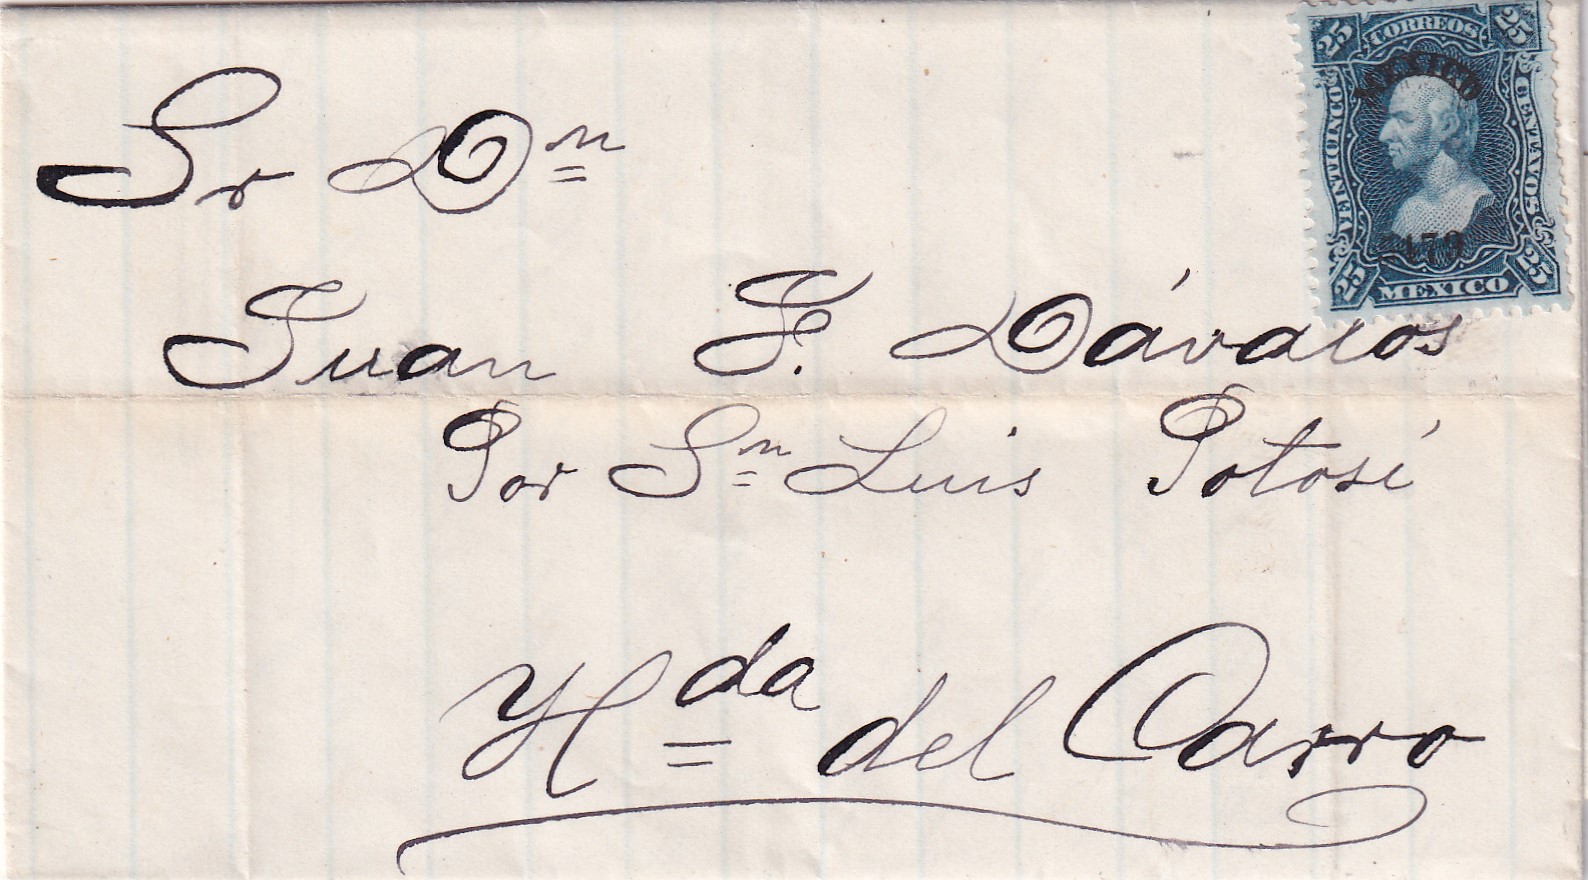 Sr Dn
Juan F. Dávalos
Por Sn Luis Potosí
Hda del Carro
25 CORREOS 25
MEXICO
VEINTICINCO
CENTAVOS
25 MEXICO 25